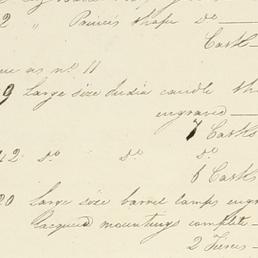 2 " Prince's Shape do
Casks
nº 11
9 Large size India candle Sh
engraved
7 Casks
12 do do do
6 Casks
20 Large size barrel lamps engr
lacquered mountings complete
2 Tierces